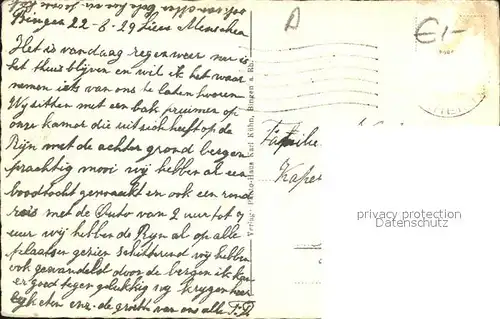 Bingen 22-6-29 Lieve Menschen
Het is vandaag regen weer nu is
het thuis blijven en wil ik het waar
nemen iets van ons te laten hooren
Wy zitten met een bak pruimen op
onze kamer die uitsich heeft op de
Rijn met de achter grond bergen
prachtig mooi wij hebben al een
boottocht gemaakt en ook een rond
reis met de Auto van 2 uur tot 7
uur wij hebben de Ryn al op alle
plaatsen gezien schitterend wij hebben
ook gewandeld door de bergen ik kan
er goed tegen gelukkig wy krygen heer
lijk eten enz. de groeten van ons alle F. P.
Verlag: Photo-Haus Karl Kühn, Bingen a. Rh.
A
€1-
Familie
privacy protection
Datenschutz